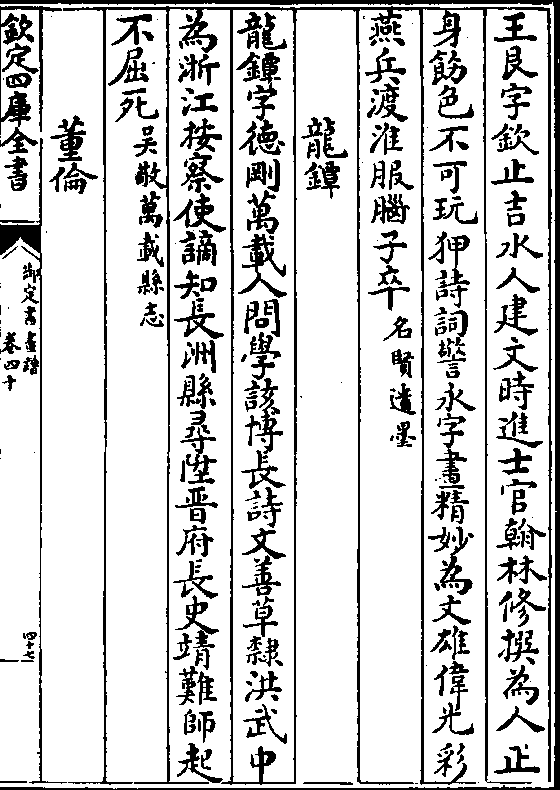 王艮字欽止吉水人建文時進士官翰林修撰為人正
身飭色不可玩狎詩詞警永字畫精妙為文雄偉光彩
燕兵渡淮服腦子卒名賢遺墨
龍鐔
龍鐔字德剛萬載人問學該博長詩文善草隸洪武中
為浙江按察使謫知長洲縣尋陞晋府長史靖難師起
不屈死吴敬萬載縣志
董倫
欽定四庫全書
御定書畫譜
卷四十
四十七